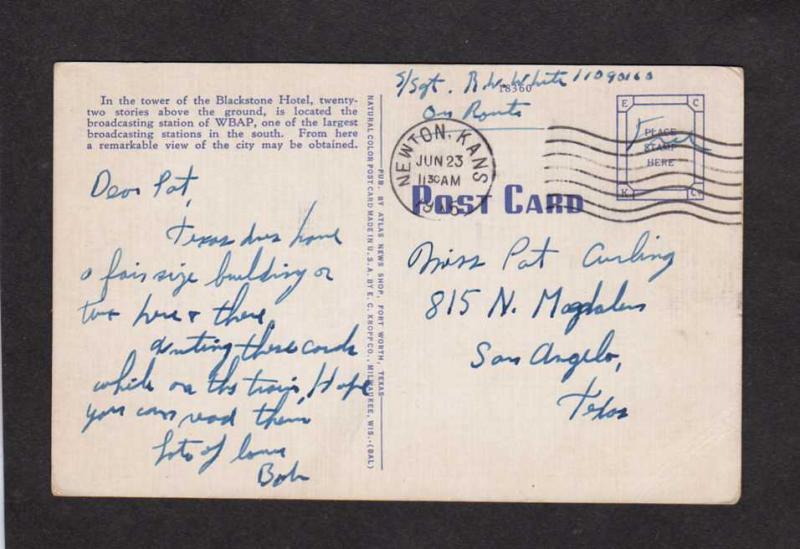 In the tower of the Blackstone Hotel, twenty-
two stories above the ground, is located the
broadcasting station of WBAP, one of the largest
broadcasting stations in the south. From here
a remarkable view of the city may be obtained.
Dear Pat,
Texas does have
a fair size building or
two here & there
these cards
while on the train, Hope
you can read them
Lots of love
Bob
NATURAL COLOR POST CARD MADE IN U.S.A. BY E. C. KROPP CO., MILWAUKEE, WIS.-(BAL)
PUB. BY ATLAS NEWS SHOP, FORT WORTH, TEXAS
S/Sgt. R.W. White 11090160
18360
On Route
NEWTON, KANS
JUN 23
11 30 AM
POST CARD
E C
PLACE
STAMP
HERE
K Co
Free
Miss Pat Curling
815 N. Magdalen
San Angelo,
Texas